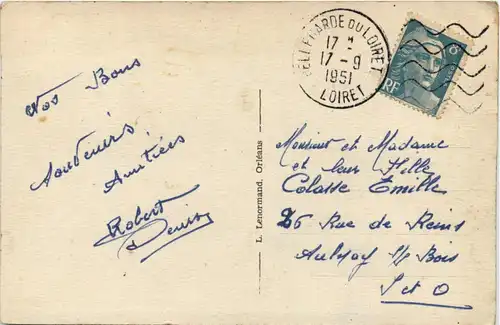 Nos Bons
Souvenirs
Amitiés
Robert
Denise
L. Lenormand, Orléans
BELLEGARDE DU LOIRET
17 H
17 - 9
1951
LOIRET
8F
RF
Monsieur et Madame
et leur Fille
Colasse Emille
26 Rue de Reims
Aulnay s/s Bois
S et O